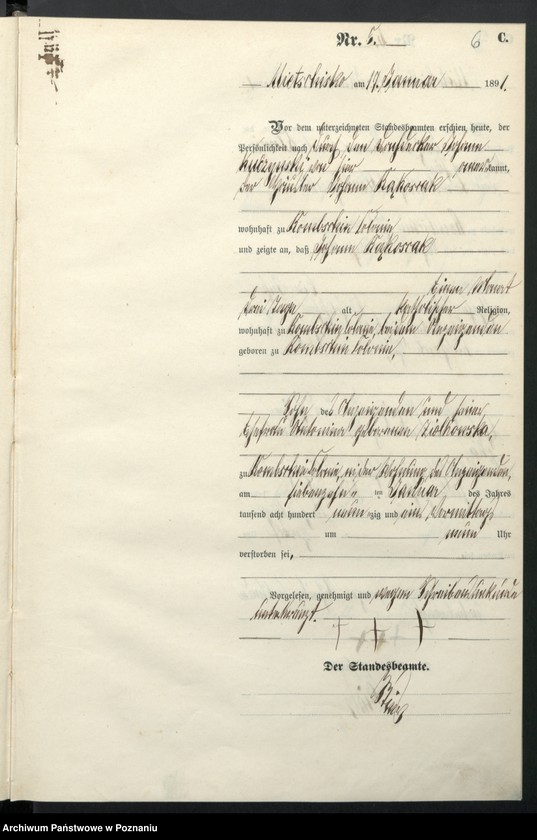 Nr. 5. 6 C.
Mietschisko am 19. Januar 1891.
Vor dem unterzeichneten Standesbeamten erschien heute, der
Persönlichkeit nach durch den Dachdecker Johann
von hier anerkannt,
der Johann Kąkosrak
wohnhaft zu Kombschin Colonie
und zeigte an, daß Johann Kąkosrak
einen Monat
drei Tage alt, katholischer Religion,
wohnhaft zu Kombschin Colonie bei dem Anzeigenden
geboren zu Kombschin Colonie,
Sohn des Anzeigenden und seiner
Ehefrau Antonina geborenen Ziolkowska,
zu Kombschin Colonie, in der Wohnung des Anzeigenden,
am siebenzehnten Januar des Jahres
tausend acht hundert neunzig und eins, Vormittags
um neun Uhr
verstorben sei,
Vorgelesen, genehmigt und wegen Schreibensunkunde
unterkreuzt.
† † †
Der Standesbeamte.
Archiwum Państwowe w Poznaniu